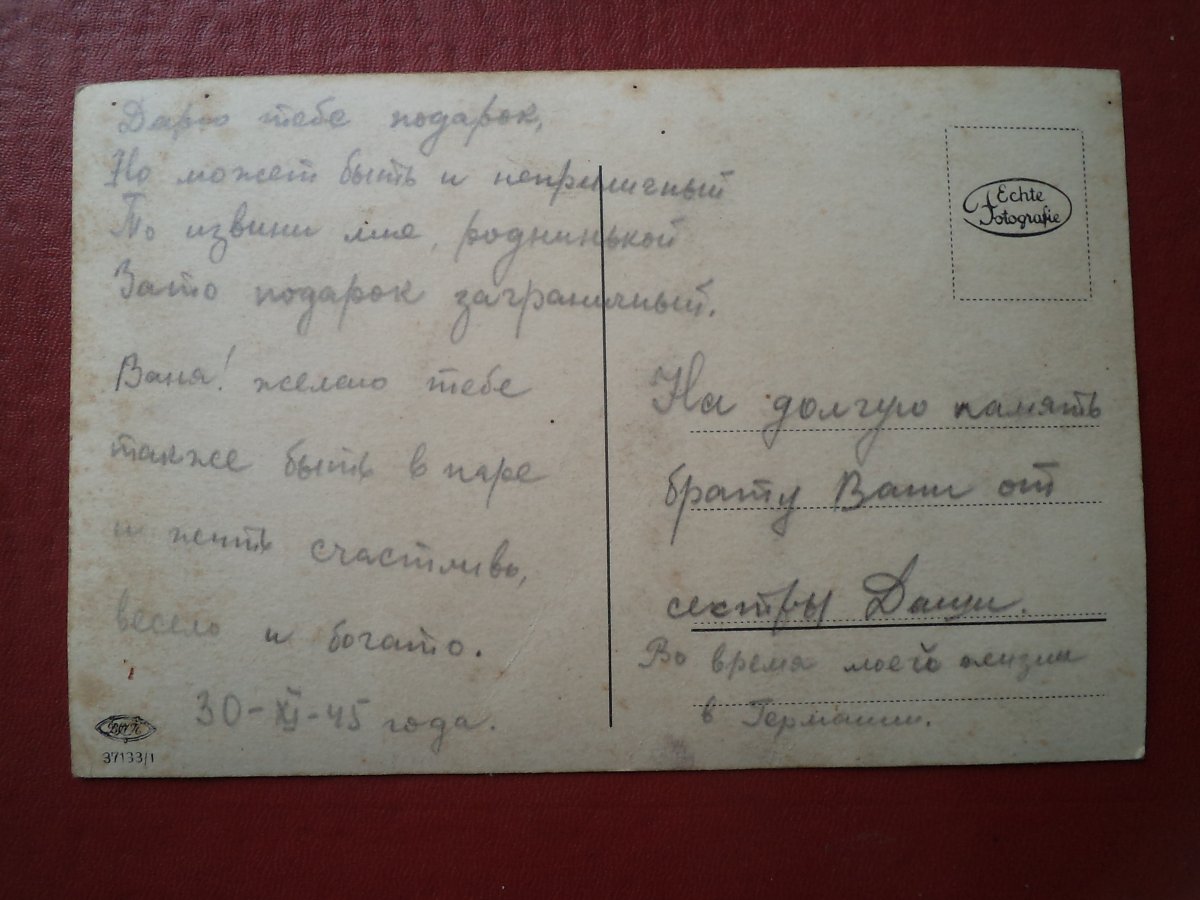 Дарю тебе подарок,
Но может быть и неприличный
То извини мие, роднинькой
Зато подарок заграничный.
Ваня! желаю тебе
также быть в паре
и жить счастливо,
весело и богато.
30-XI-45 года.
37133/1
Echte
Fotografie
На долгую память
брату Вани от
сектры Даши.
Во время моей жизни
в Германии.